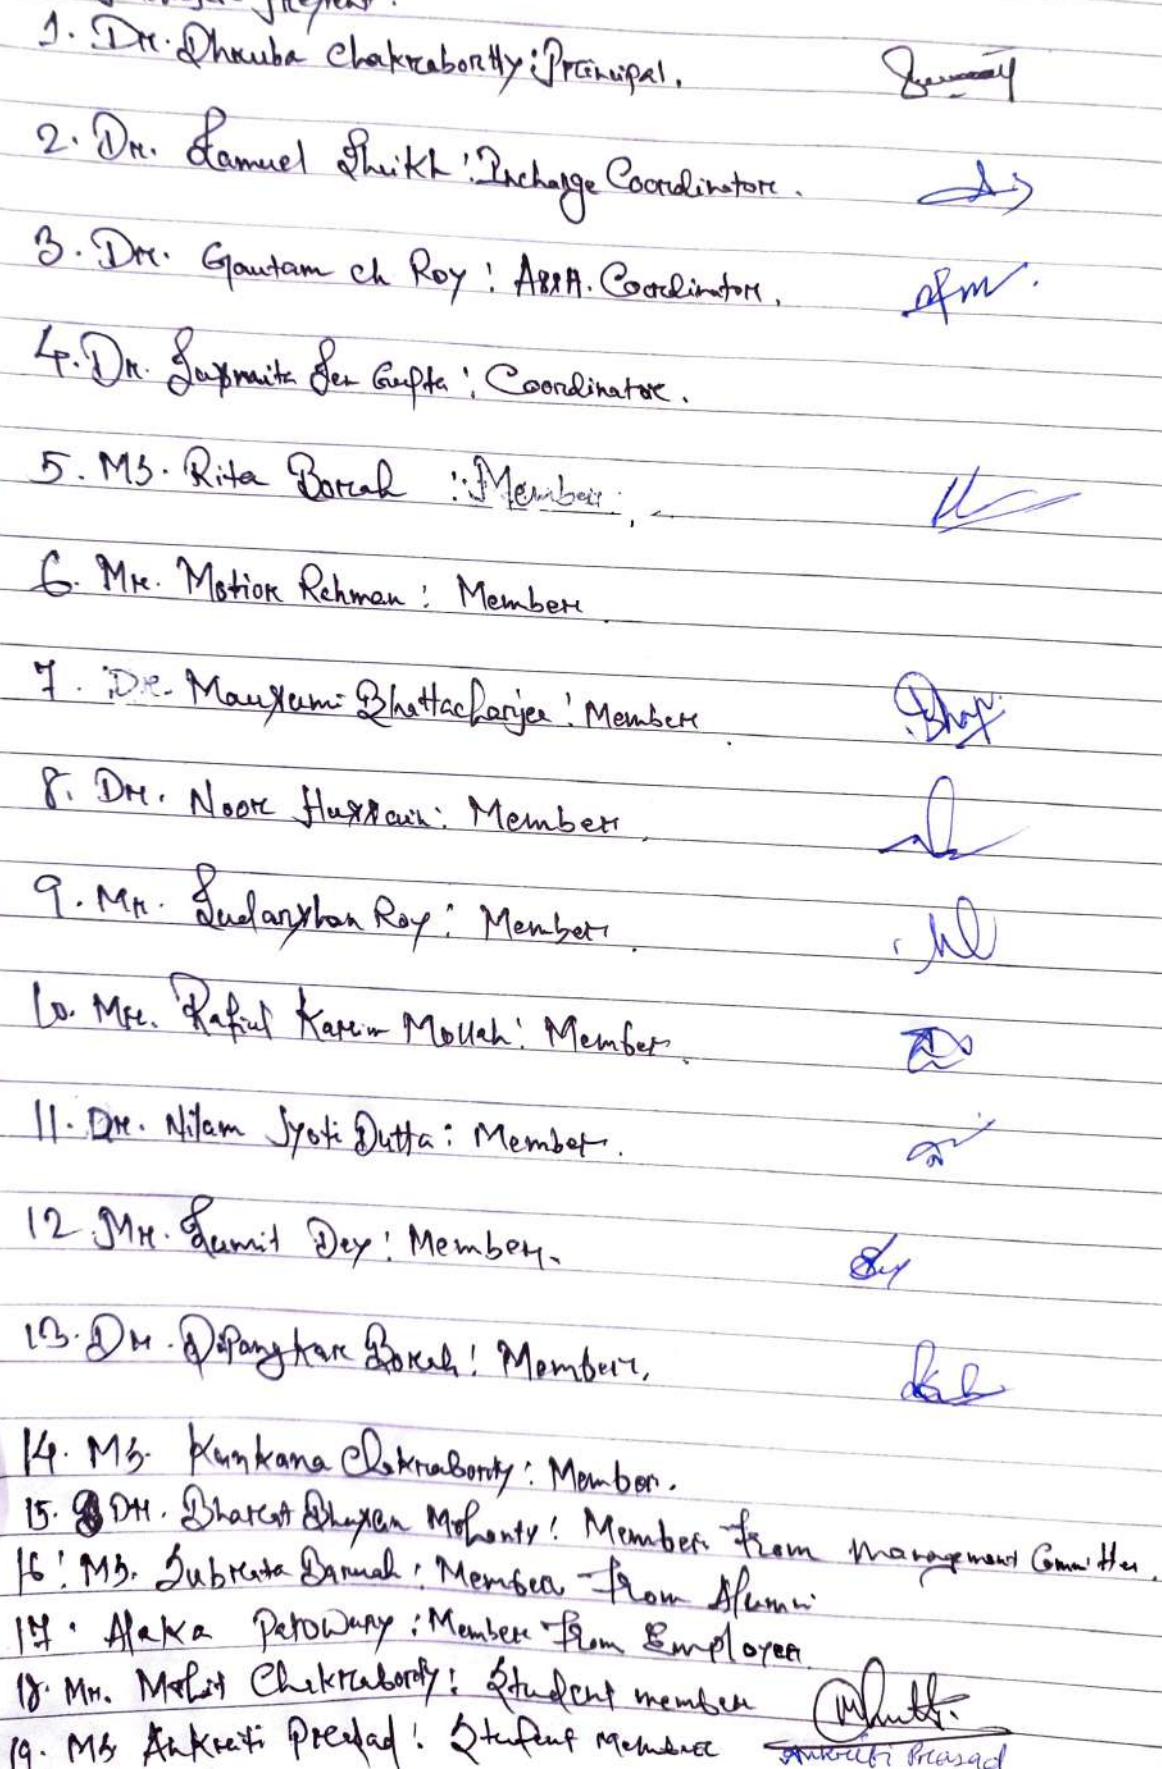 1. Dr. Dhruba Chakraborty: Principal.
2. Dr. Samuel Sheikh: Incharge Coordinator.
3. Dr. Gautam ch Roy: Asst. Coordinator.
4. Dr. Susmita Sen Gupta: Coordinator.
5. Ms. Rita Borah: Member.
6. Mr. Motior Rehman: Member
7. Dr. Mausumi Bhattacharjee: Member
8. Dr. Noor Hussain: Member
9. Mr. Sudarshan Roy: Member
10. Mr. Rafiul Karim Mollah: Member
11. Dr. Nilam Jyoti Dutta: Member.
12 Mr. Sumit Dey: Member.
13. Dr. Dipangkar Borah: Member,
14. Ms. Kunkana Chakraborty: Member.
15. Dr. Bharat Bhusan Mohanty: Member from Management Committee.
16: Ms. Subrata Baruah: Member from Alumni
17. Alaka Patowary: Member from Employee
18. Mr. Mohit Chakraborty: Student member
19. Ms Ankriti Prasad: Student Member Ankriti Prasad